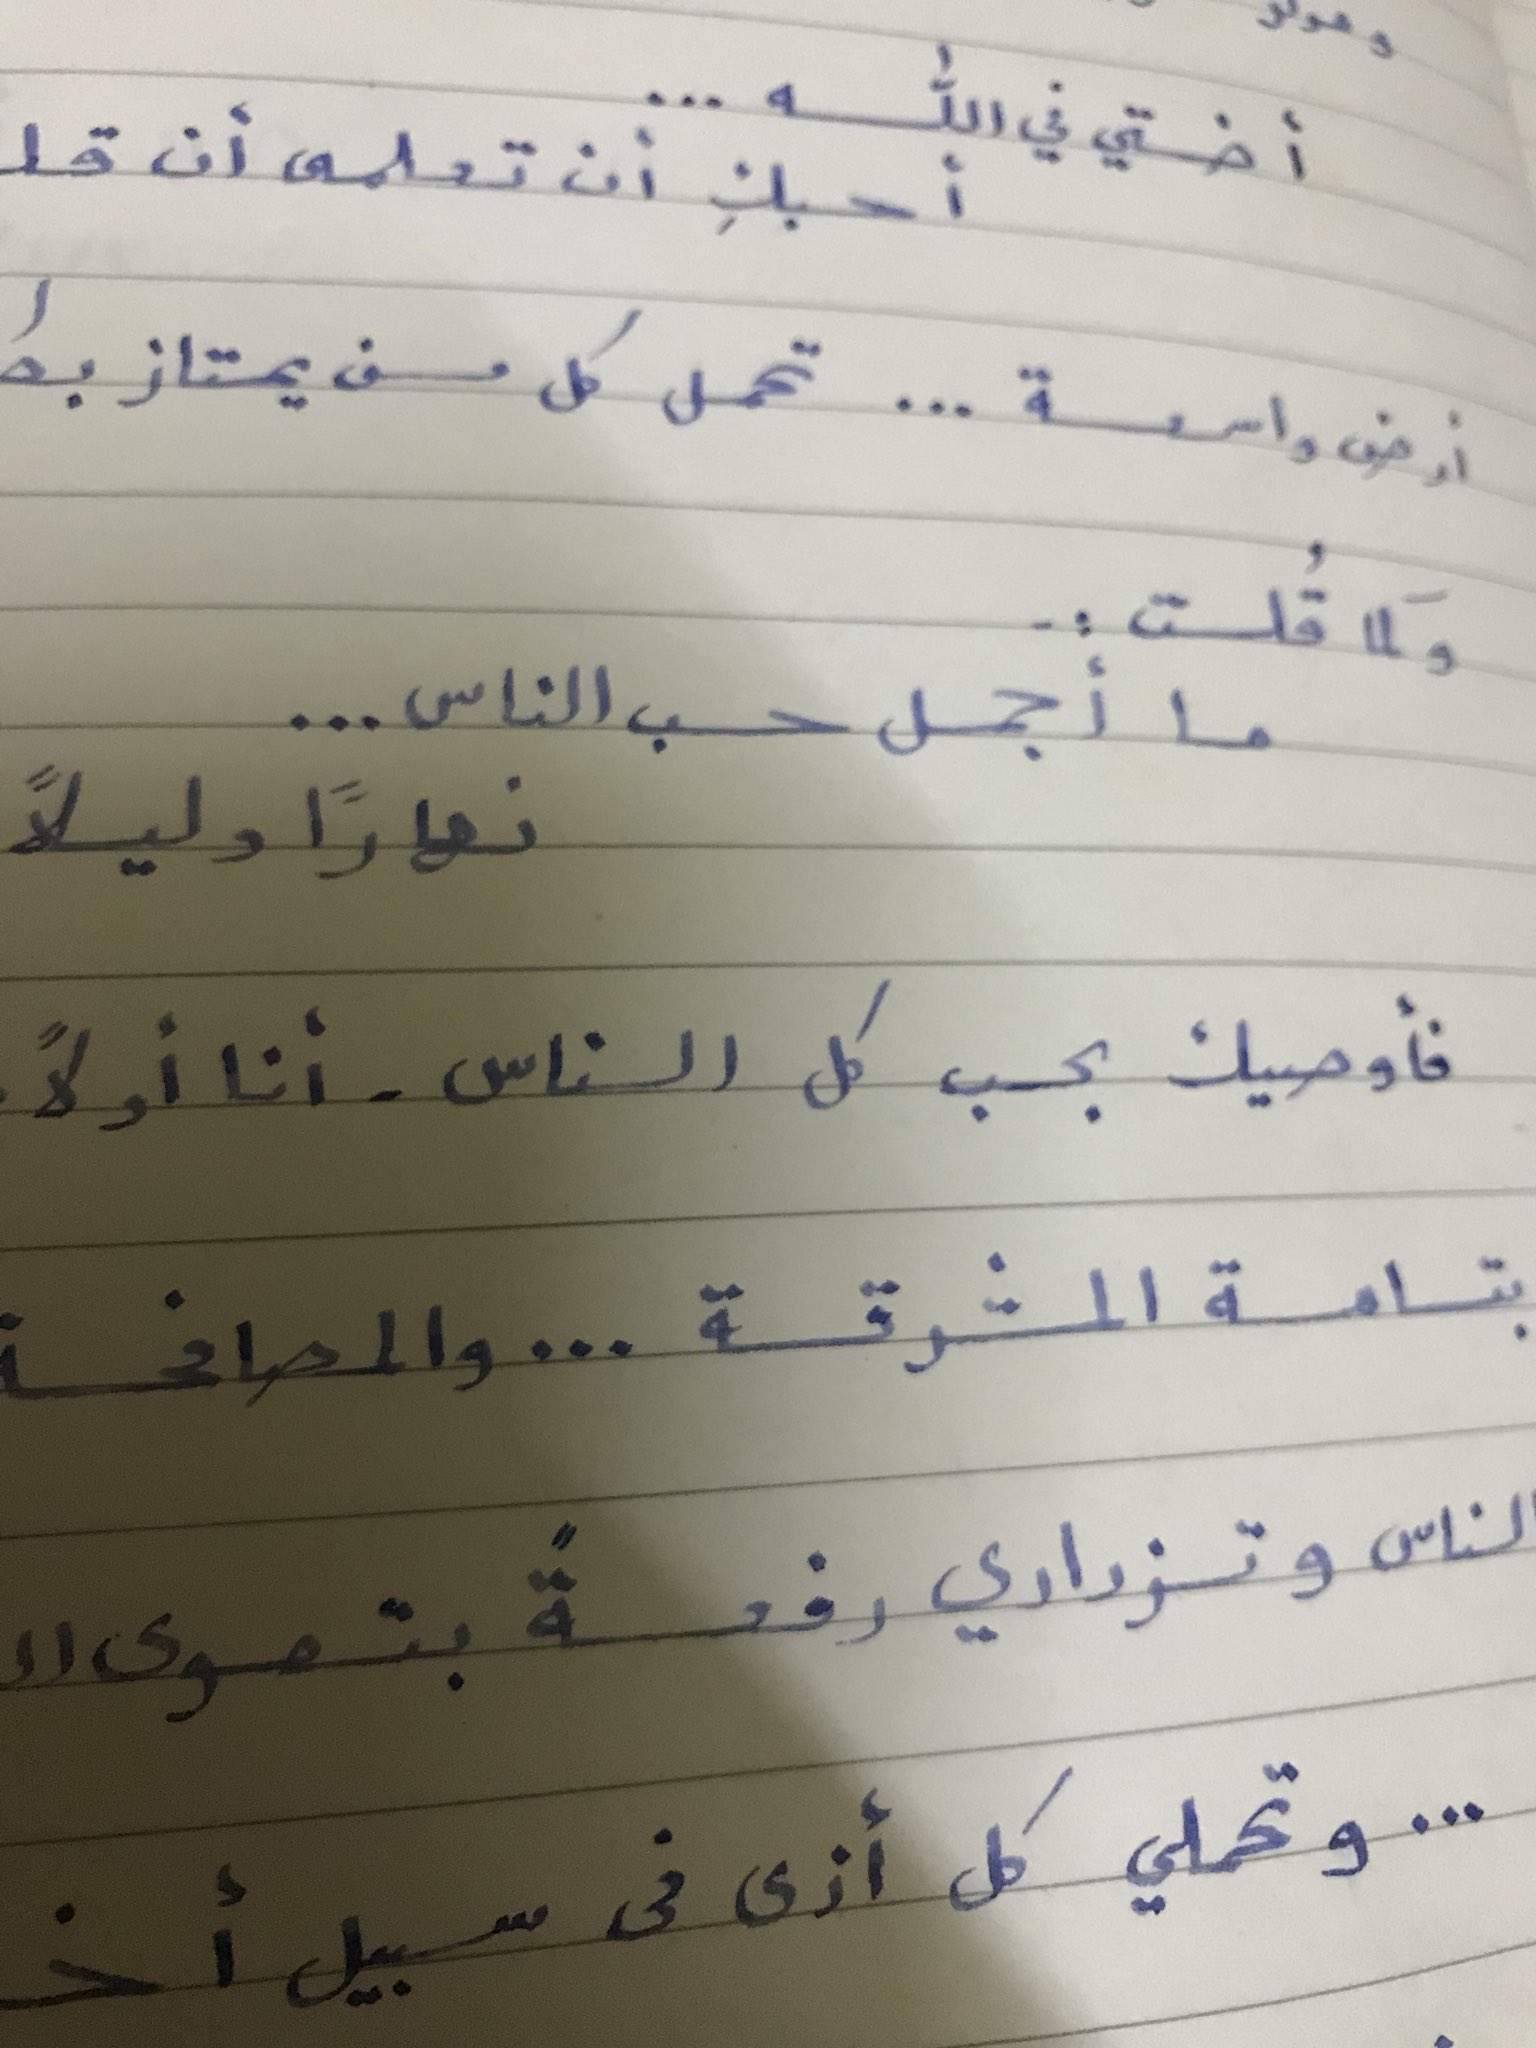 أختي في الله ...
أحبكِ أن تعلمى أن
أرض واسعة ... تحمل كل من يمتاز
وَلما قُلت :-
ما أجمل حب الناس ...
نهارًا وليلاً
فأوصيك بحب كل الناس - أنا أولاً
بتسامة المشرقة ... والمصافحة
الناس وتزدادي رفعةً
... وتحملي كل أذى فى سبيل